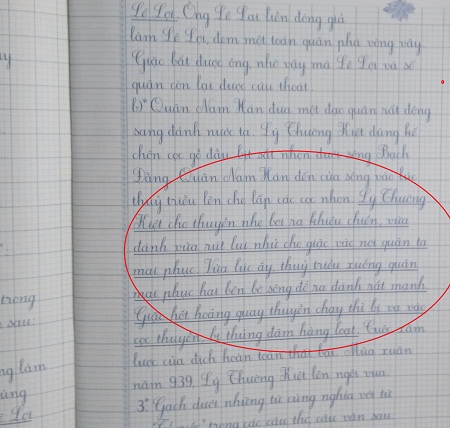 Lê Lợi. Ông Lê Lai liền đóng giả
làm Lê Lợi, đem một toán quân phá vòng vây
Giặc bắt được ông, nhờ vậy mà Lê Lợi và số
quân còn lại được cứu thoát.
b)* Quân Nam Hán đưa một đạo quân rất đông
sang đánh nước ta. Lý Thường Kiệt dùng kế
chôn cọc gỗ đầu sắt nhọn dưới sông Bạch
Đằng. Quân Nam Hán đến cửa sông vào lúc
thuỷ triều lên che lấp các cọc nhọn. Lý Thường
Kiệt cho thuyền nhẹ bơi ra khiêu chiến, vừa
đánh vừa rút lui nhử cho giặc vào nơi quân ta
mai phục. Vừa lúc ấy thuỷ triều xuống quân
mai phục hai bên bờ sông đổ ra đánh rất mạnh
Giặc hốt hoảng quay thuyền chạy thì bị va vào
cọc thuyền bị thủng đắm hàng loạt. Cuộc xâm
lược của địch hoàn toàn thất bại. Mùa xuân
năm 939, Lý Thường Kiệt lên ngôi vua
3.* Gạch dưới những từ cùng nghĩa với từ
trong các câu thơ, câu văn sau
trong
sau:
làm
Lợi